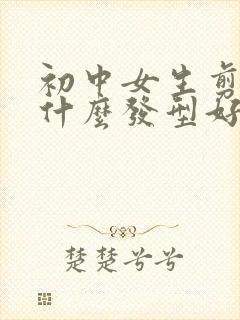 初中女生剪
什麼發型好
楚楚兮兮